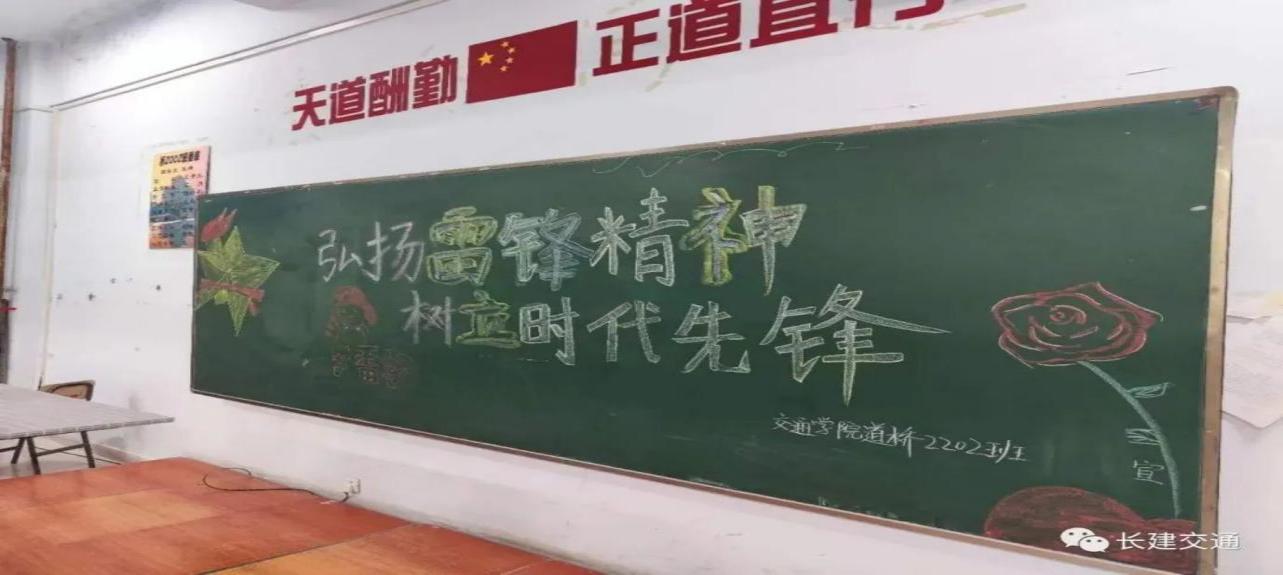 天道酬勤 正道直行
弘扬雷锋精神
树立时代先锋
交通学院道桥2202班
宣
长建交通